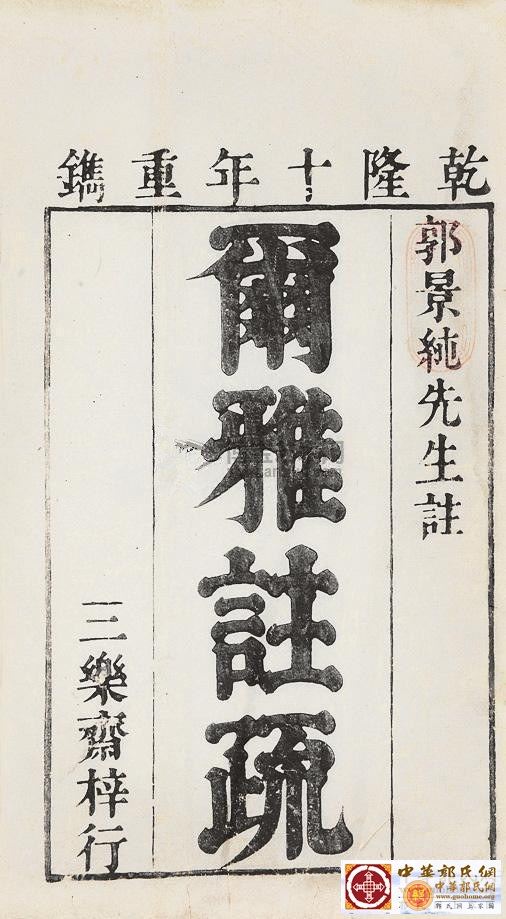 乾隆十年重鐫
郭景純先生註
爾雅註疏
三樂齋梓行
中華郭氏網
中華郭氏網
www.guohome.org